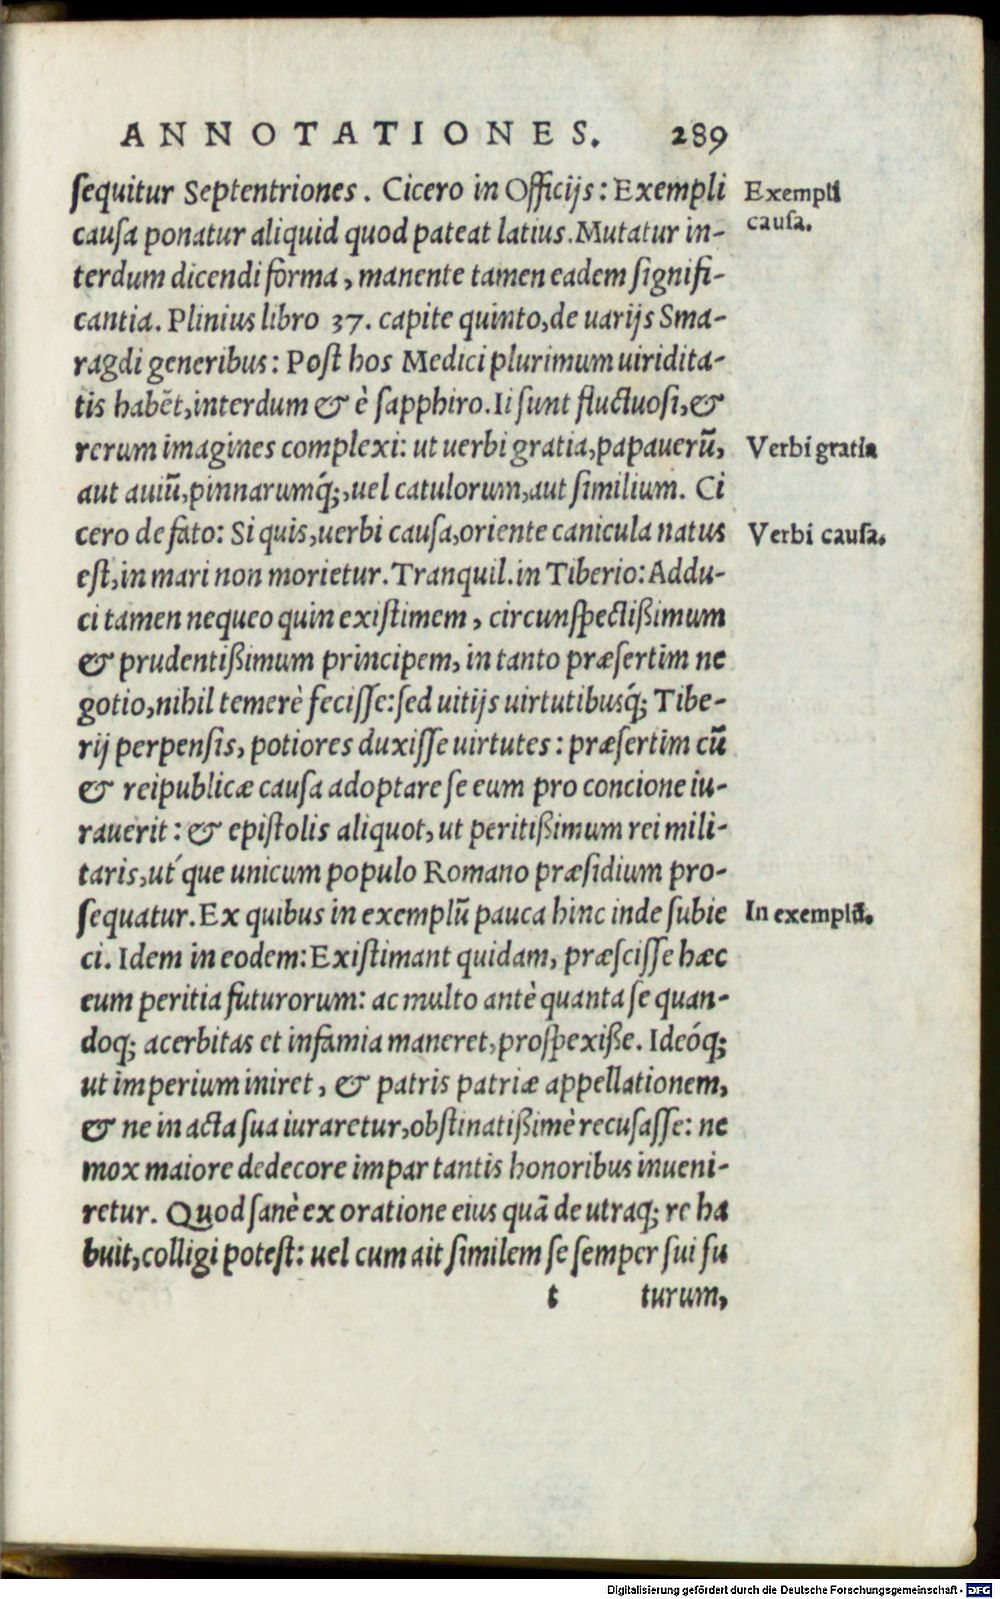 ANNOTATIONES. 289
sequitur Septentriones. Cicero in Officijs: Exempli
Exempli
causa ponatur aliquid quod pateat latius. Mutatur in-
causa.
terdum dicendi forma, manente tamen eadem signifi-
cantia. Plinius libro 37. capite quinto, de uarijs Sma-
ragdi generibus: Post hos Medici plurimum uiridita-
tis habēt, interdum & è sapphiro. Ii sunt fluctuosi, &
rerum imagines complexi: ut uerbi gratia, papauerū,
Verbi gratia
aut auiū, pinnarumq́;, uel catulorum, aut similium. Ci
cero de fato: Si quis, uerbi causa, oriente canicula natus
Verbi causa.
est, in mari non morietur. Tranquil. in Tiberio: Addu-
ci tamen nequeo quin existimem, circunspectißimum
& prudentißimum principem, in tanto præsertim ne
gotio, nihil temerè fecisse: sed uitijs uirtutibusq́; Tibe-
rij perpensis, potiores duxisse uirtutes: præsertim cū
& reipublicæ causa adoptare se eum pro concione iu-
rauerit: & epistolis aliquot, ut peritißimum rei mili-
taris, ut́ que unicum populo Romano præsidium pro-
sequatur. Ex quibus in exemplū pauca hinc inde subie
In exemplū.
ci. Idem in eodem: Existimant quidam, præscisse hæc
eum peritia futurorum: ac multo antè quanta se quan-
doq; acerbitas et infamia maneret, prospexiße. Ideóq;
ut imperium iniret, & patris patriæ appellationem,
& ne in acta sua iuraretur, obstinatißimè recusasse: ne
mox maiore dedecore impar tantis honoribus inueni-
retur. Quod sanè ex oratione eius quā de utraq; re ha
buit, colligi potest: uel cum ait similem se semper sui fu
t turum,
Digitalisierung gefördert durch die Deutsche Forschungsgemeinschaft - DFG